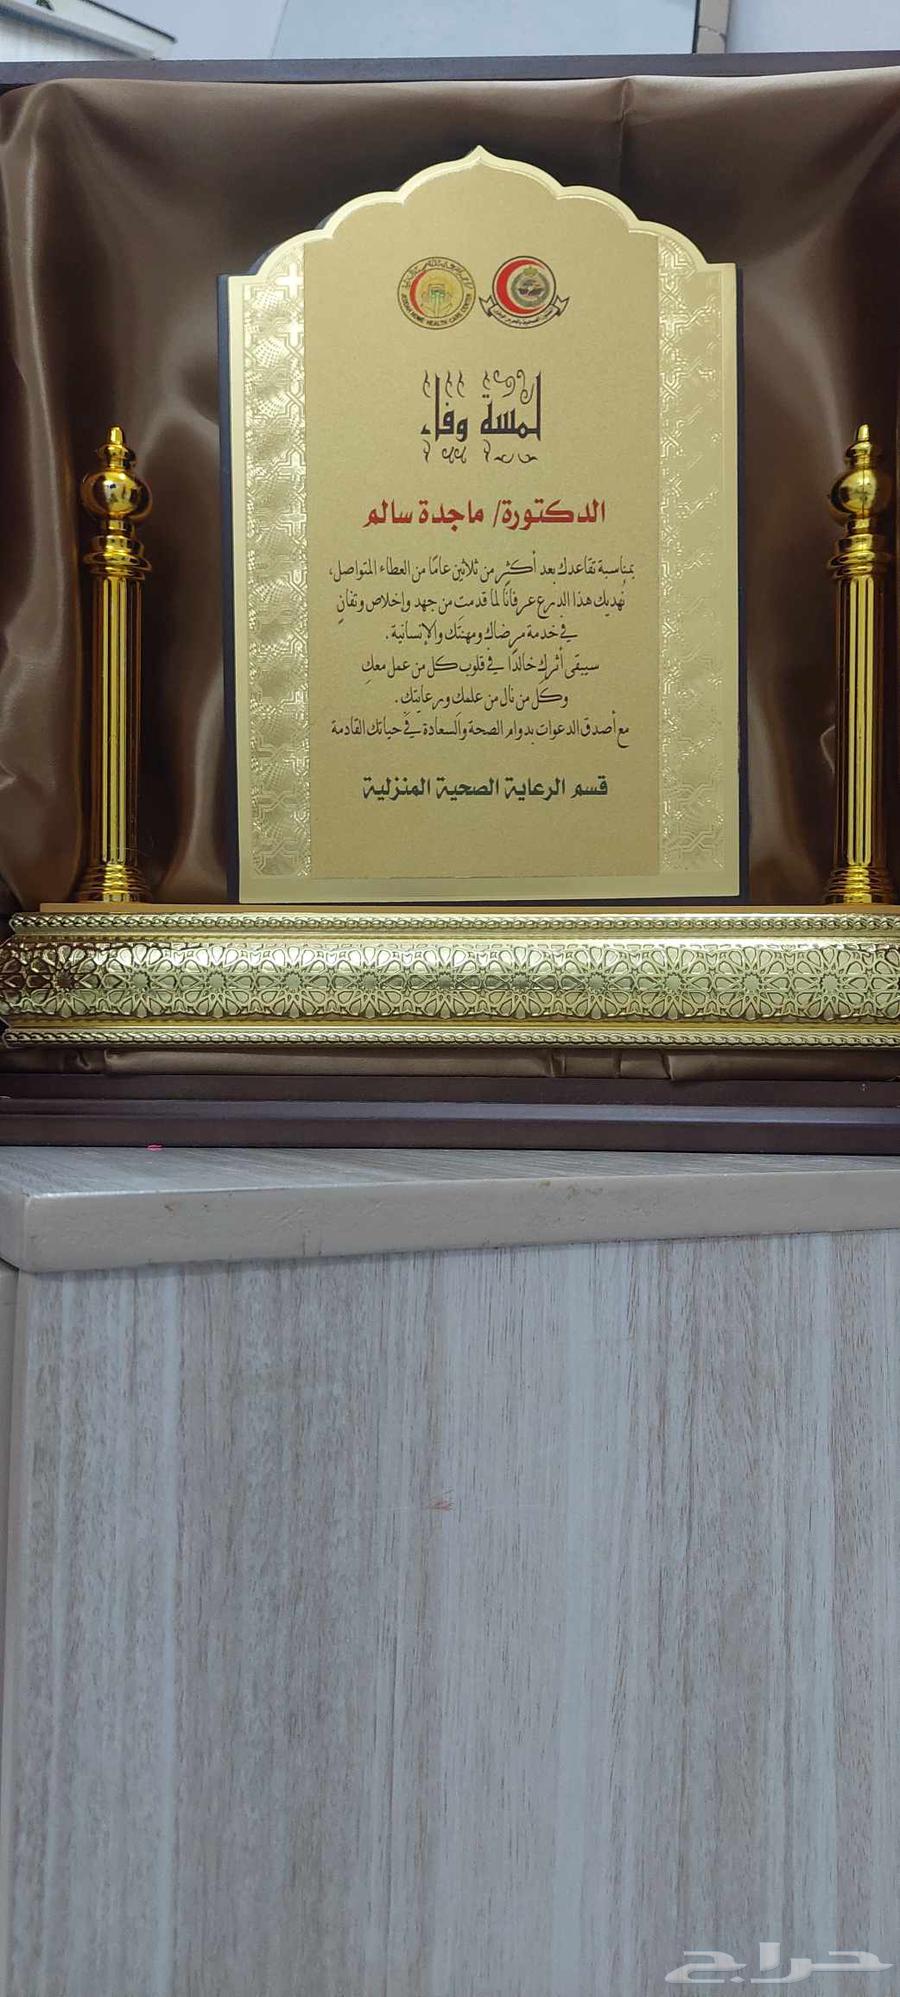 JEDDAH HOME HEALTH CARE CENTER
لمسة وفاء
الدكتورة/ ماجدة سالم
بمناسبة تقاعدك بعد أكثر من ثلاثين عامًا من العطاء المتواصل،
نُهديك هذا الدرع عرفانًا لما قدمت من جهد وإخلاص وتفانٍ
في خدمة مرضاك ومهنتك والإنسانية.
سيبقى أثرك خالدًا في قلوب كل من عمل معكِ
وكل من نال من علمكِ ورعايتكِ.
مع أصدق الدعوات بدوام الصحة والسعادة في حياتك القادمة
قسم الرعاية الصحية المنزلية
حراج